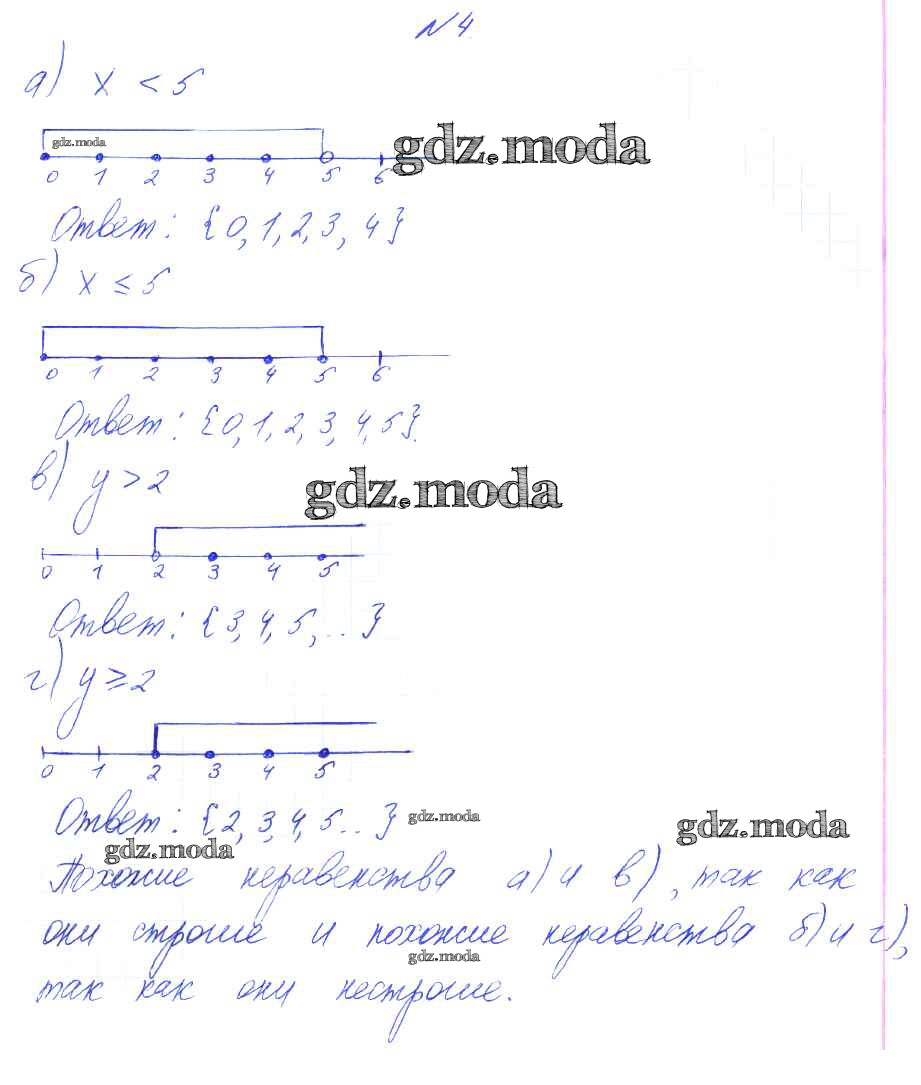 №4
а) x < 5
gdz.moda
0 1 2 3 4 5 6 gdz.moda
Ответ: {0, 1, 2, 3, 4}
б) x ≤ 5
0 1 2 3 4 5 6
Ответ: {0, 1, 2, 3, 4, 5}.
в) y > 2
gdz.moda
0 1 2 3 4 5
Ответ: {3, 4, 5, ..}
г) y ≥ 2
0 1 2 3 4 5
Ответ: {2, 3, 4, 5..} gdz.moda
gdz.moda
gdz.moda
Похожие неравенства а) и в), так как
они строгие и похожие неравенства б) и г),
gdz.moda
так как они нестрогие.